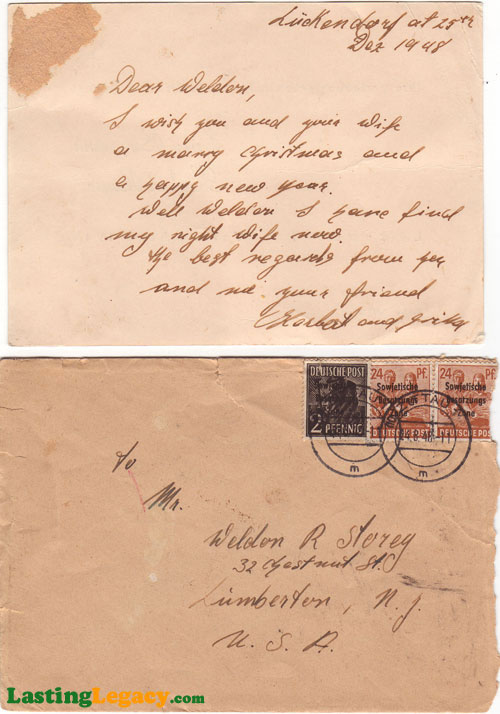 Lückendorf at 25th
Dez 1948
Dear Weldon,
I wish you and your wife
a marry christmas and
a happy new year.
Well Weldon I have find
my right wife now.
the best regards from her
and me your friend
and Erika
DEUTSCHE POST
2 PFENNIG
24 PF.
Sowjetische
Besatzungs
Zone
DEUTSCHE POST
24 PF.
Sowjetische
Besatzungs
Zone
DEUTSCHE
m
m
To
Mr.
Weldon R Storey
32 Chestnut St.
Lumberton, N.J.
U.S.A.
LastingLegacy.com